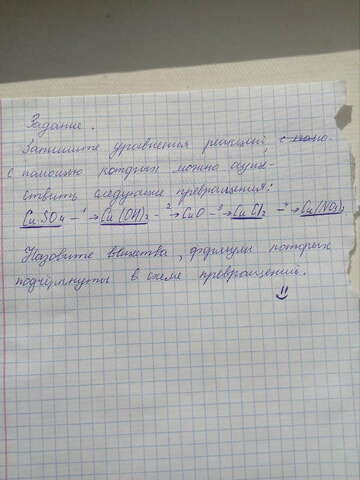 Задание.
Запишите уравнения реакций
с помощью которых можно осуще-
ствить следующие превращения:
CuSO4 -¹→ Cu(OH)2 -²→ CuO -³→ CuCl2 -⁴→ Cu(NO3)2
Назовите вещества, формулы которых
подчёркнуты в схеме превращений.